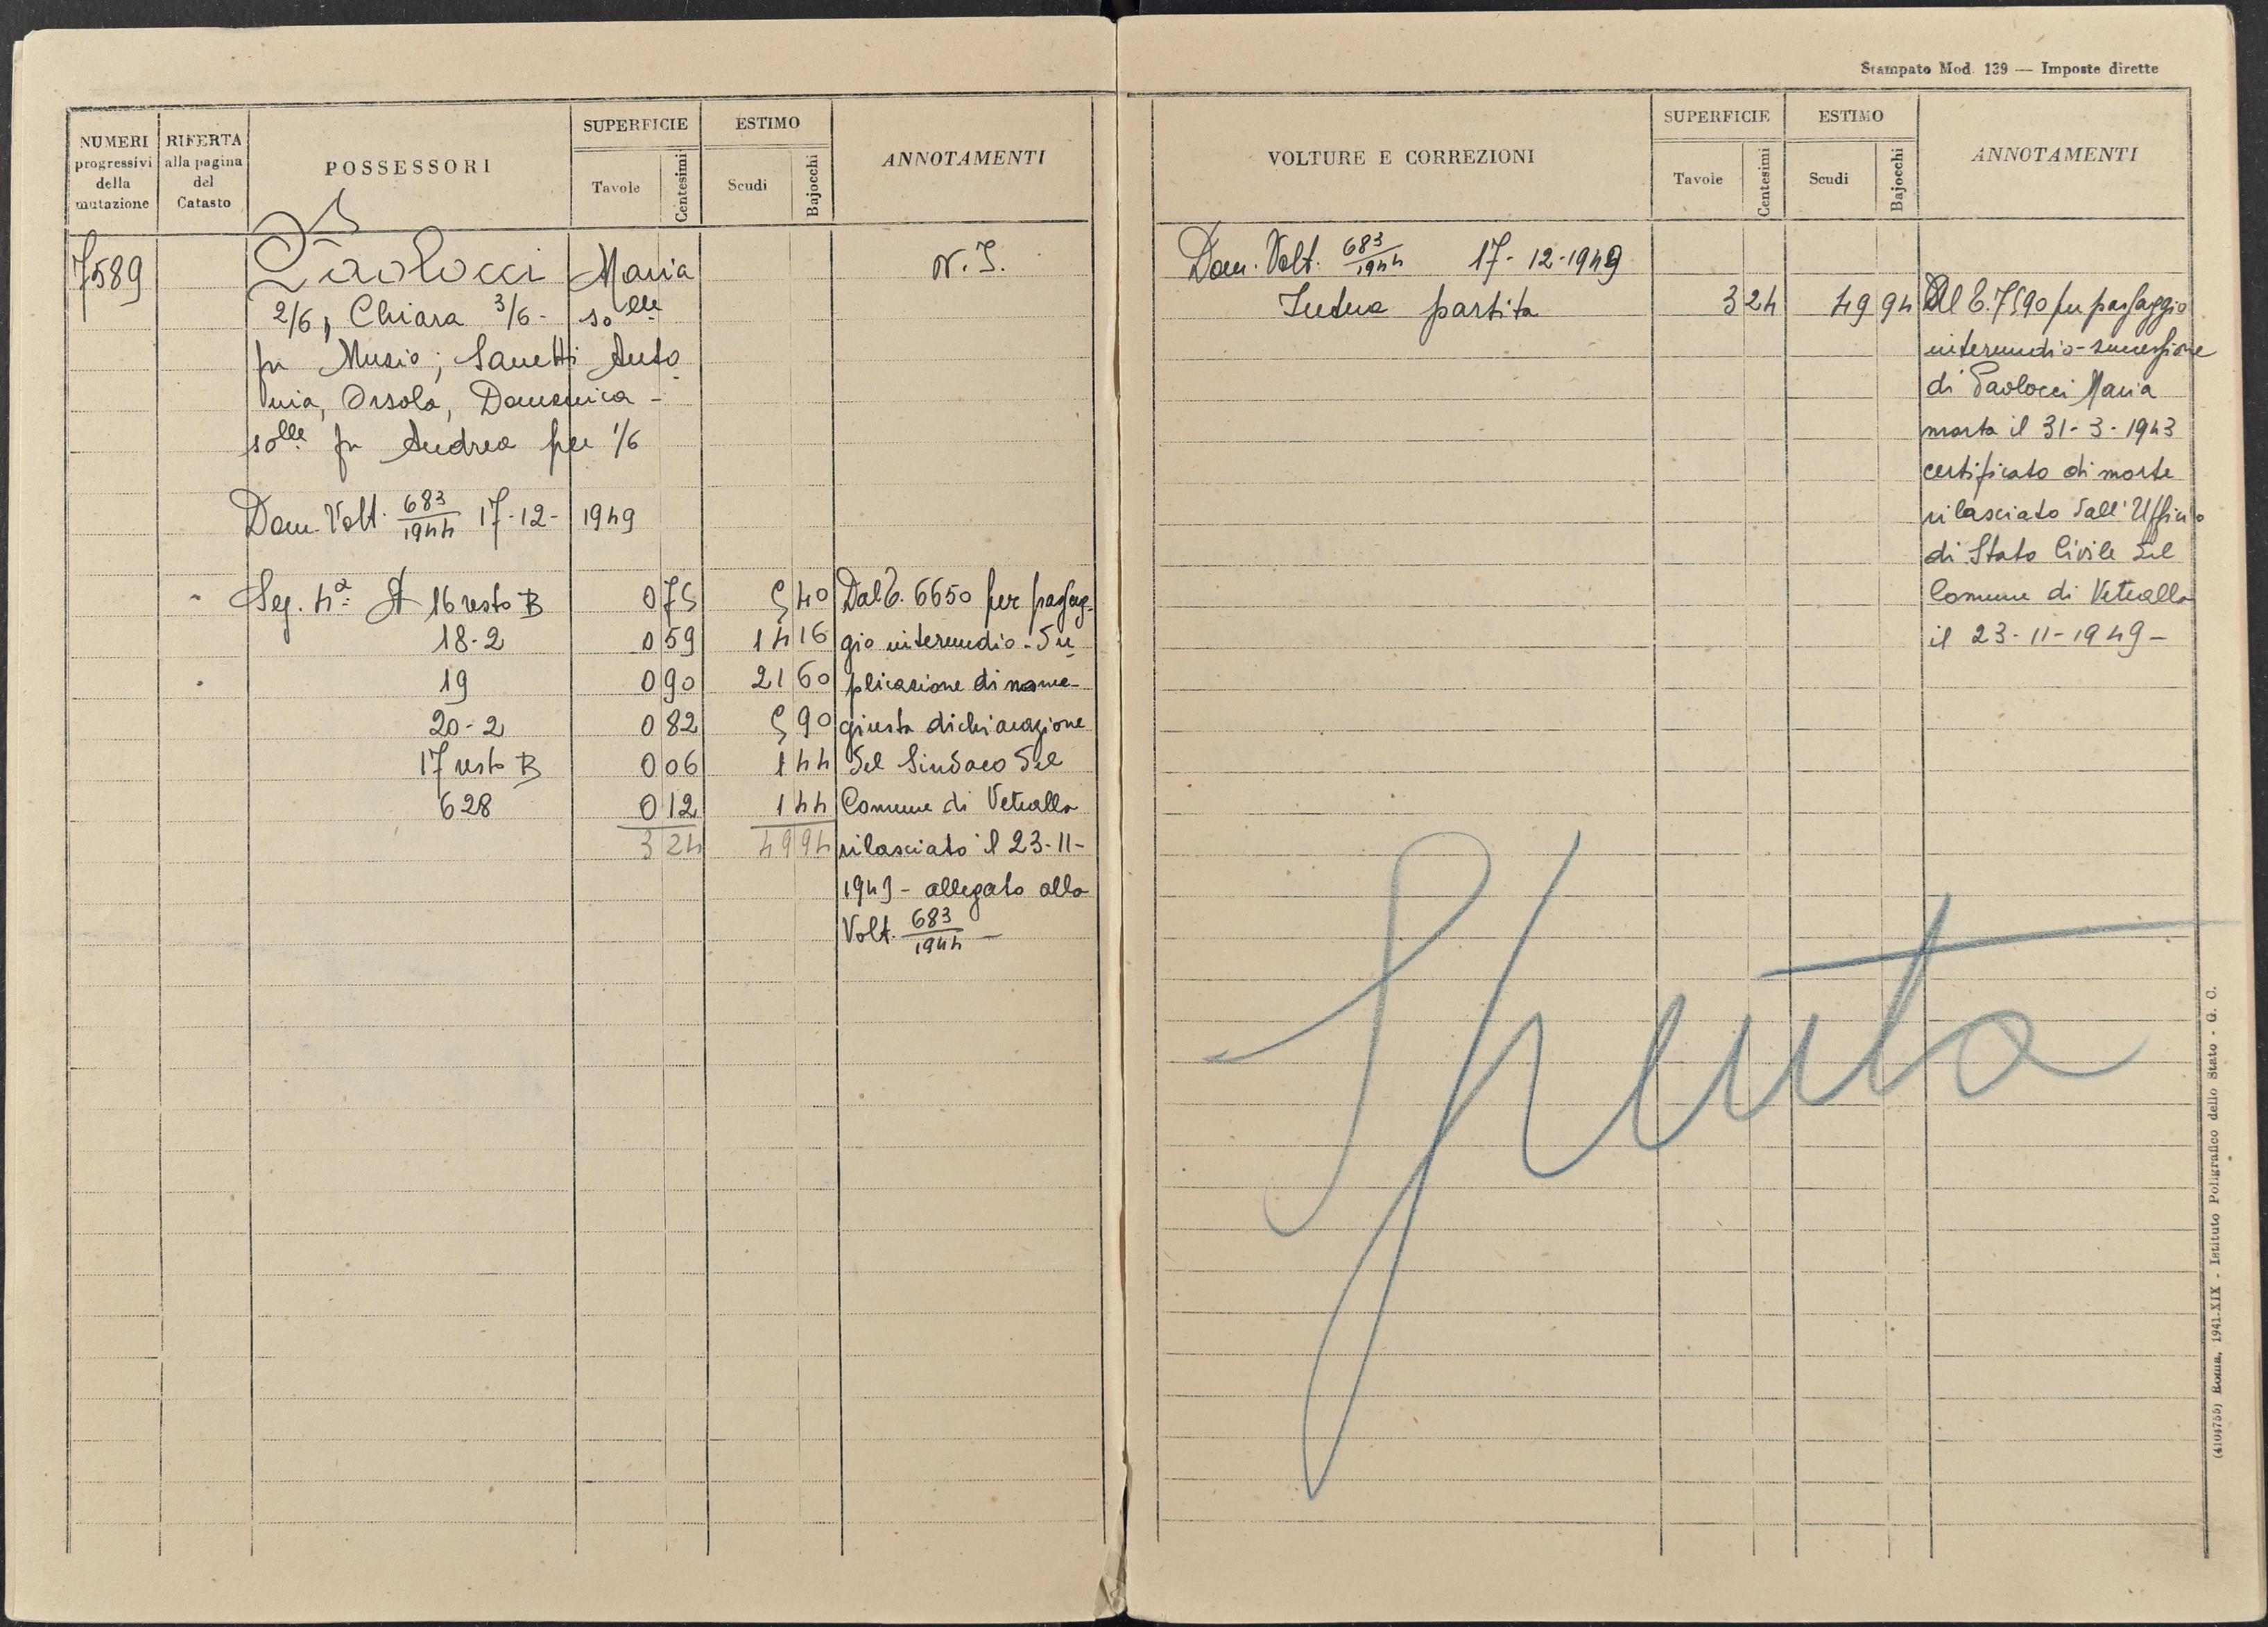 NUMERI progressivi della mutazione
RIFERTA alla pagina del Catasto
POSSESSORI
SUPERFICIE
Tavole
Centesimi
ESTIMO
Scudi
Bajocchi
ANNOTAMENTI
7589
Paolocci Maria
N. I.
2/6, Chiara 3/6 - solle
fu Musio; Sanetti Anto
nia, Orsola, Domenica -
solle fu Andrea per 1/6
Dom. Volt. 683/1944 17-12-1949
Seg. 4a A 16 resto B 0 75 5 40 Dal C. 6650 per passag-
18-2 0 59 14 16 gio intermedio - Du
19 0 90 21 60 plicazione di nome -
20-2 0 82 5 90 giusta dichiarazione
17 resto B 0 06 1 44 del Sindaco del
628 0 12 1 44 Comune di Vetralla
3 24 49 94 rilasciato il 23-11-
1949 - allegato alla
Volt. 683/1944 -
Stampato Mod. 139 — Imposte dirette
VOLTURE E CORREZIONI
SUPERFICIE
Tavole
Centesimi
ESTIMO
Scudi
Bajocchi
ANNOTAMENTI
Dom. Volt. 683/1944 17-12-1949
Intera partita 3 24 49 94 Al C. 7590 per passaggio
intermedio - successione
di Paolocci Maria
morta il 31-3-1943
certificato di morte
rilasciato dall'Ufficio
di Stato Civile del
Comune di Vetralla
il 23-11-1949 -
Spenta
(4104755) Roma, 1941-XIX - Istituto Poligrafico dello Stato - G. C.